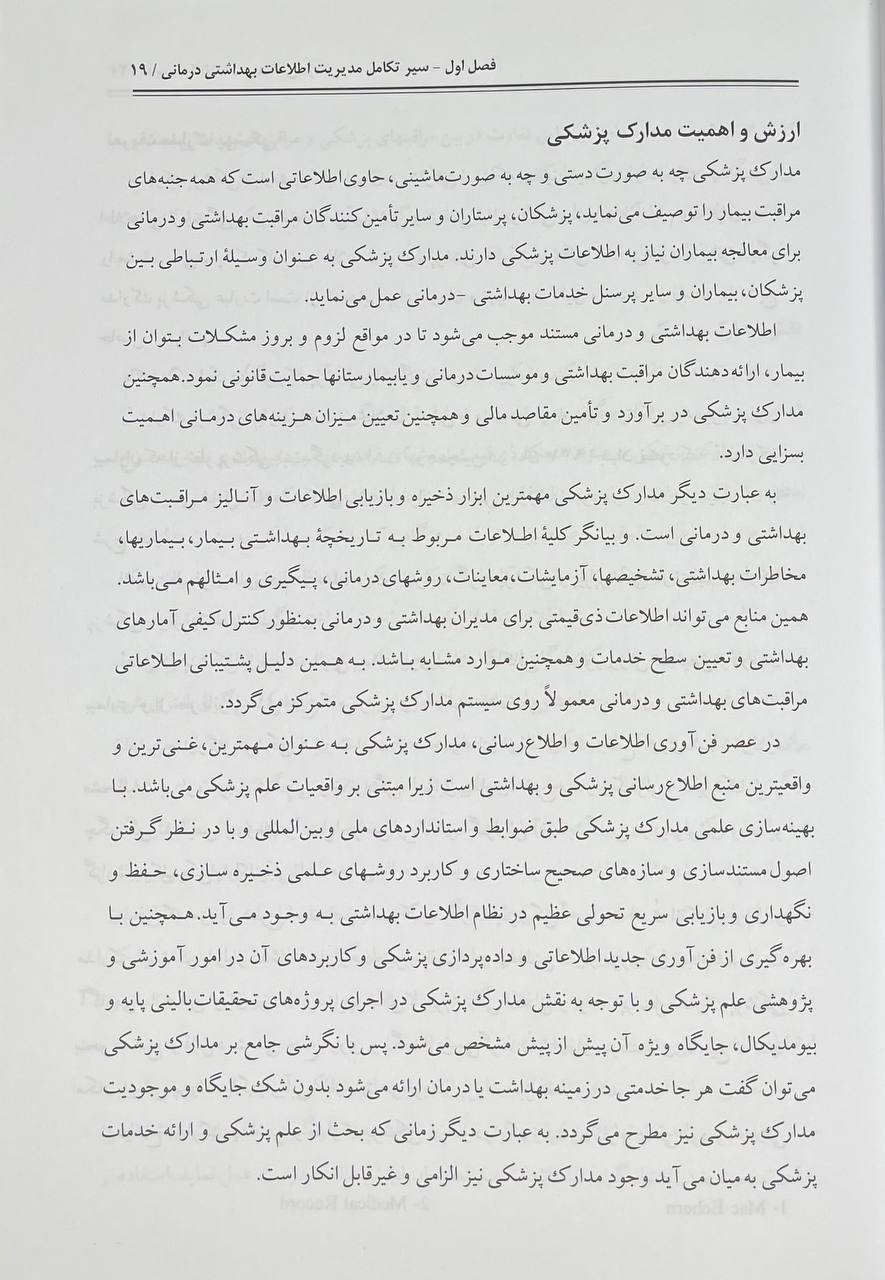 فصل اول - سیر تکامل مدیریت اطلاعات بهداشتی درمانی / ۱۹
ارزش و اهمیت مدارک پزشکی
مدارک پزشکی چه به صورت دستی و چه به صورت ماشینی، حاوی اطلاعاتی است که همه جنبه‌های
مراقبت بیمار را توصیف می‌نماید، پزشکان، پرستاران و سایر تأمین‌کنندگان مراقبت بهداشتی و درمانی
برای معالجه بیماران نیاز به اطلاعات پزشکی دارند. مدارک پزشکی به عنوان وسیلهٔ ارتباطی بین
پزشکان، بیماران و سایر پرسنل خدمات بهداشتی -درمانی عمل می‌نماید.
اطلاعات بهداشتی و درمانی مستند موجب می‌شود تا در مواقع لزوم و بروز مشکلات بتوان از
بیمار، ارائه‌دهندگان مراقبت بهداشتی و موسسات درمانی و یابیمارستانها حمایت قانونی نمود.همچنین
مدارک پزشکی در برآورد و تأمین مقاصد مالی و همچنین تعیین میزان هزینه‌های درمانی اهمیت
بسزایی دارد.
به عبارت دیگر مدارک پزشکی مهمترین ابزار ذخیره و بازیابی اطلاعات و آنالیز مراقبت‌های
بهداشتی و درمانی است. و بیانگر کلیهٔ اطلاعات مربوط به تاریخچهٔ بهداشتی بیمار، بیماریها،
مخاطرات بهداشتی، تشخیصها، آزمایشات،معاینات، روشهای درمانی، پیگیری و امثالهم می‌باشد.
همین منابع می‌تواند اطلاعات ذی‌قیمتی برای مدیران بهداشتی و درمانی بمنظور کنترل کیفی آمارهای
بهداشتی و تعیین سطح خدمات و همچنین موارد مشابه باشد. به همین دلیل پشتیبانی اطلاعاتی
مراقبت‌های بهداشتی و درمانی معمولاً روی سیستم مدارک پزشکی متمرکز می‌گردد.
در عصر فن‌آوری اطلاعات و اطلاع‌رسانی، مدارک پزشکی به عنوان مهمترین، غنی‌ترین و
واقعیترین منبع اطلاع‌رسانی پزشکی و بهداشتی است زیرا مبتنی بر واقعیات علم پزشکی می‌باشد. با
بهینه‌سازی علمی مدارک پزشکی طبق ضوابط و استانداردهای ملی و بین‌المللی و با در نظر گرفتن
اصول مستندسازی و سازه‌های صحیح ساختاری و کاربرد روشهای علمی ذخیره سازی، حفظ و
نگهداری و بازیابی سریع تحولی عظیم در نظام اطلاعات بهداشتی به وجود می‌آید. همچنین با
بهره‌گیری از فن‌آوری جدید اطلاعاتی و داده‌پردازی پزشکی و کاربردهای آن در امور آموزشی و
پژوهشی علم پزشکی و با توجه به نقش مدارک پزشکی در اجرای پروژه‌های تحقیقات بالینی پایه و
بیومدیکال، جایگاه ویژه آن پیش از پیش مشخص می‌شود. پس با نگرشی جامع بر مدارک پزشکی
می‌توان گفت هر جا خدمتی در زمینه بهداشت یا درمان ارائه می‌شود بدون شک جایگاه و موجودیت
مدارک پزشکی نیز مطرح می‌گردد. به عبارت دیگر زمانی که بحث از علم پزشکی و ارائه خدمات
پزشکی به میان می‌آید وجود مدارک پزشکی نیز الزامی و غیرقابل انکار است.